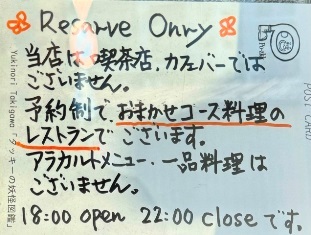 Resarve Onry
当店は喫茶店、カフェバーでは
ございません。
予約制で、おまかせコース料理の
レストランでございます。
アラカルトメニュー・一品料理は
ございません。
18:00 open 22:00 closeです。
Yukinori Takigawa「タッキーの妖怪図鑑」
POST CARD